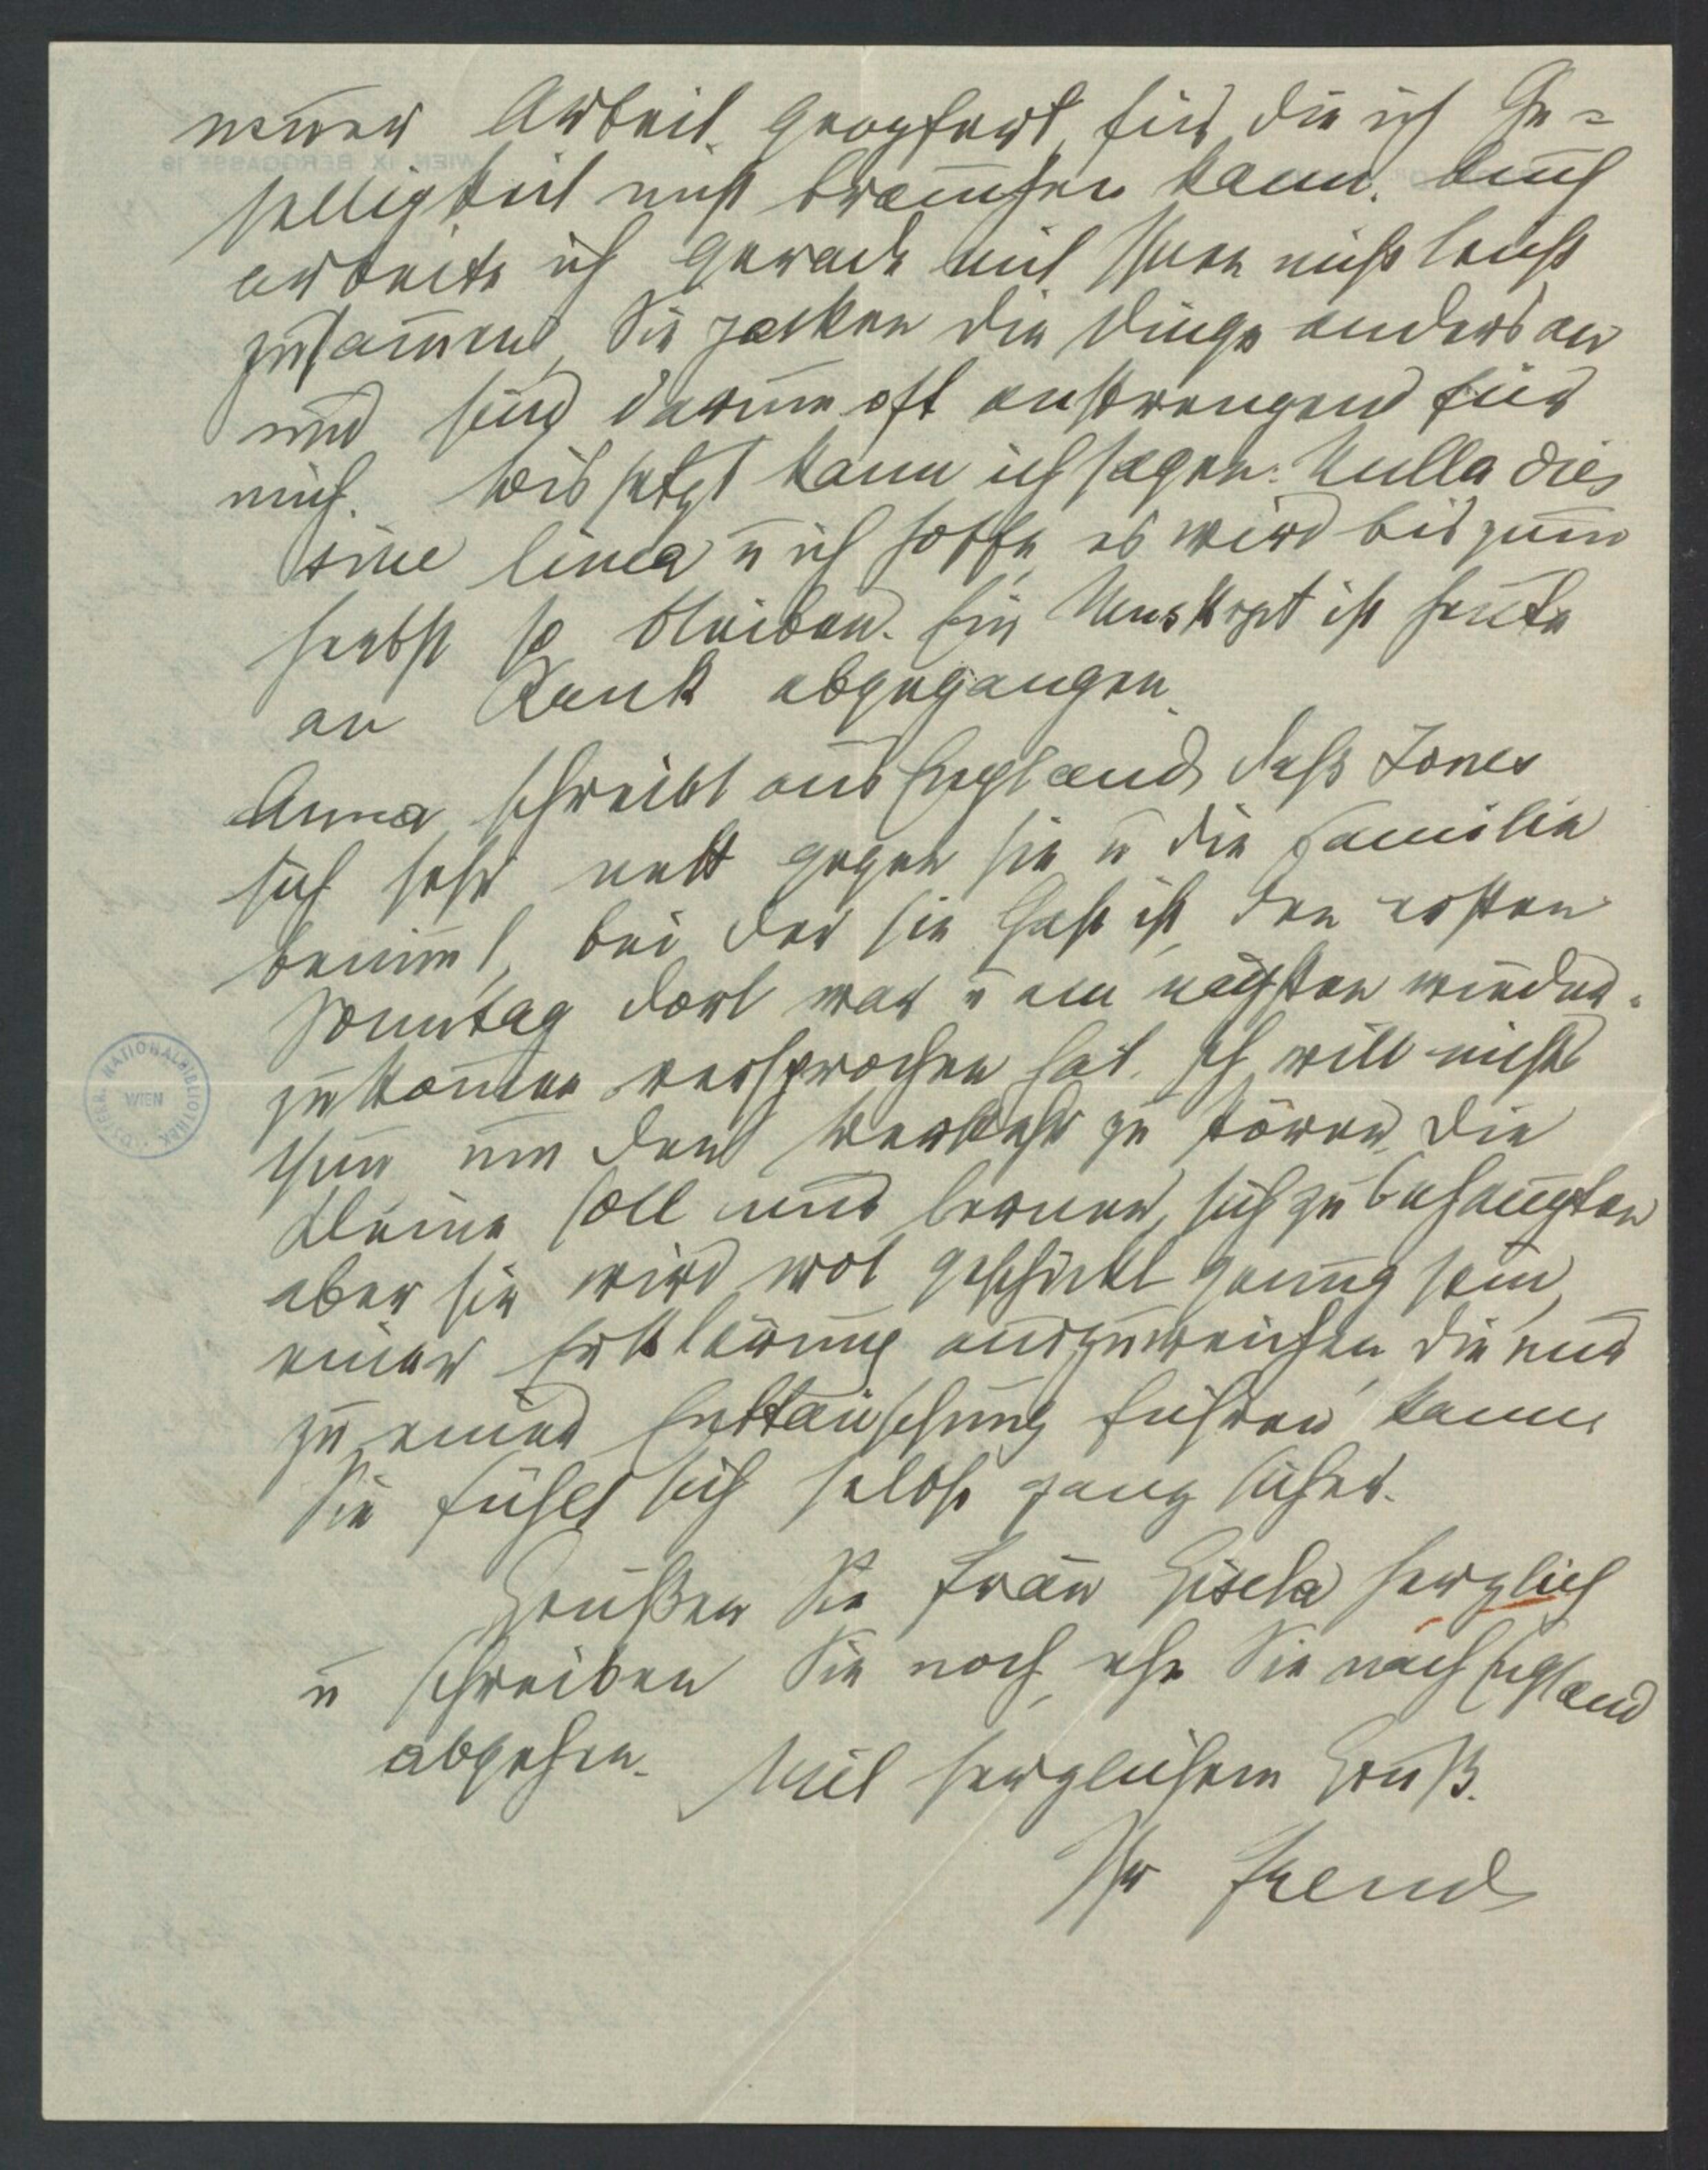 meiner Arbeit geopfert, für die ich Ge-
selligkeit nicht brauchen kann. Auch
arbeite ich gerade mit Ihnen nicht leicht
zusammen, Sie packen die Dinge anders an
und sind darum oft anstrengend für
mich. Bis jetzt kann ich sagen: Nulla dies
sine linea u ich hoffe, es wird bis zum
Herbst so bleiben. Ein Muskrpt ist heute
an Rank abgegangen.
Anna schreibt aus England, daß Jones
sich sehr nett gegen sie u die Familie
benimmt, bei der sie Gast ist, den ersten
Sonntag dort war u am nächsten wieder-
zukommen versprochen hat. Ich will nichts
thun um den Verkehr zu stören, die
Kleine soll nur lernen, sich zu behaupten
aber sie wird wol geschickt genug sein,
einer Erklärung auszuweichen, die nur
zu einer Enttäuschung führen kann.
Sie fühlt sich selbst ganz sicher.
Grüßen Sie Frau Gisela herzlich
u schreiben Sie noch, ehe Sie nach England
abgehen. Mit herzlichem Gruß.
Ihr Freud
ÖSTERR. NATIONALBIBLIOTHEK
WIEN
WIEN IX. BERGGASSE 19